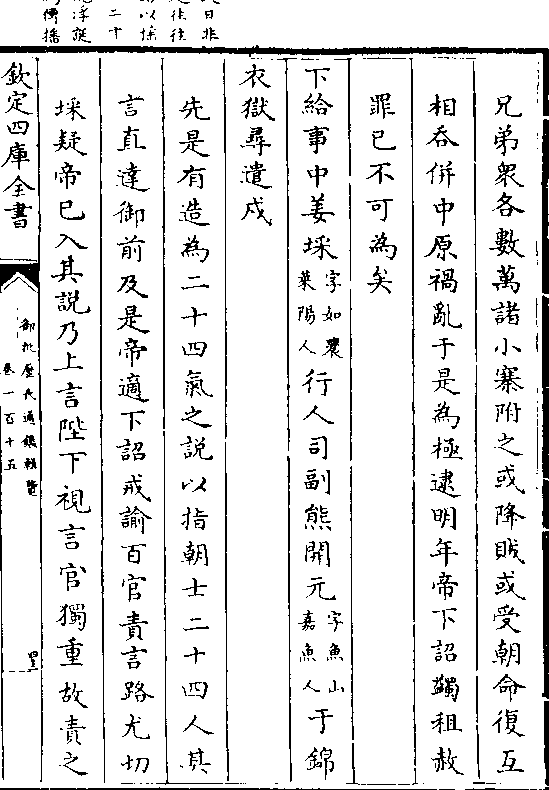 兄弟衆各數萬諸小寨附之或降賊或受朝命復互
相吞併中原禍亂于是為極逮明年帝下詔蠲租赦
罪已不可為矣
下給事中姜埰字如農萊陽人行人司副熊開元字魚山嘉魚人于錦
衣獄尋遣戍
先是有造為二十四氣之説以指朝士二十四人其
言直達御前及是帝適下詔戒諭百官責言路尤切
埰疑帝已入其説乃上言陛下視言官獨重故責之
欽定四庫全書
御批歷代通鑑輯覽
卷一百十五